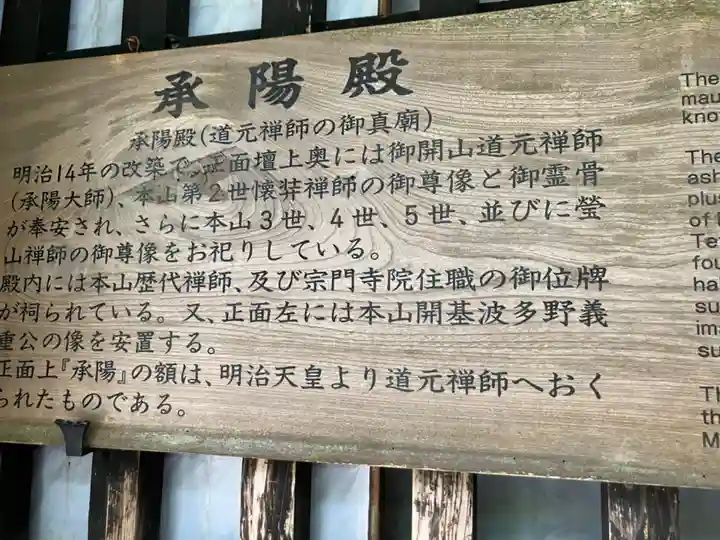 承陽殿
承陽殿(道元禅師の御真廟)
明治14年の改築で、正面壇上奥には御開山道元禅師
(承陽大師)、本山第2世懐弉禅師の御尊像と御霊骨
が奉安され、さらに本山3世、4世、5世、並びに瑩
山禅師の御尊像をお祀りしている。
殿内には本山歴代禅師、及び宗門寺院住職の御位牌
が祠られている。又、正面左には本山開基波多野義
重公の像を安置する。
正面上『承陽』の額は、明治天皇より道元禅師へおく
られたものである。
The
mau
kno
The
ash
plus
of
Te
fou
ha
su
im
su
Th
the
M